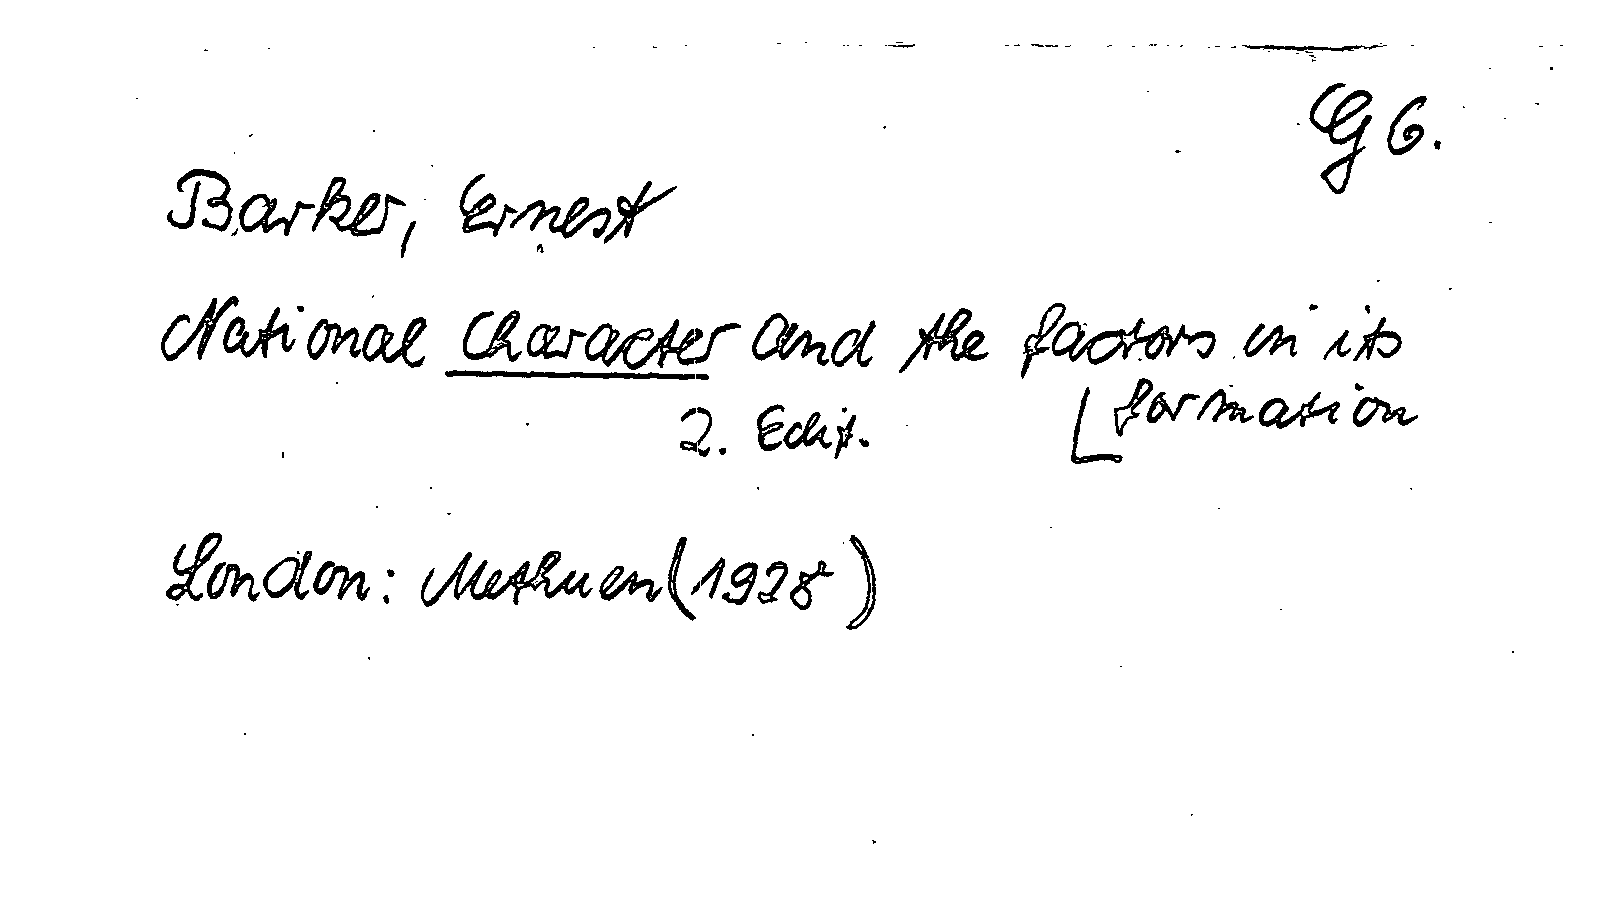 G 6.
Barker, Ernest
National Character and the factors in its
formation
2. Edit.
London: Methuen (1928)